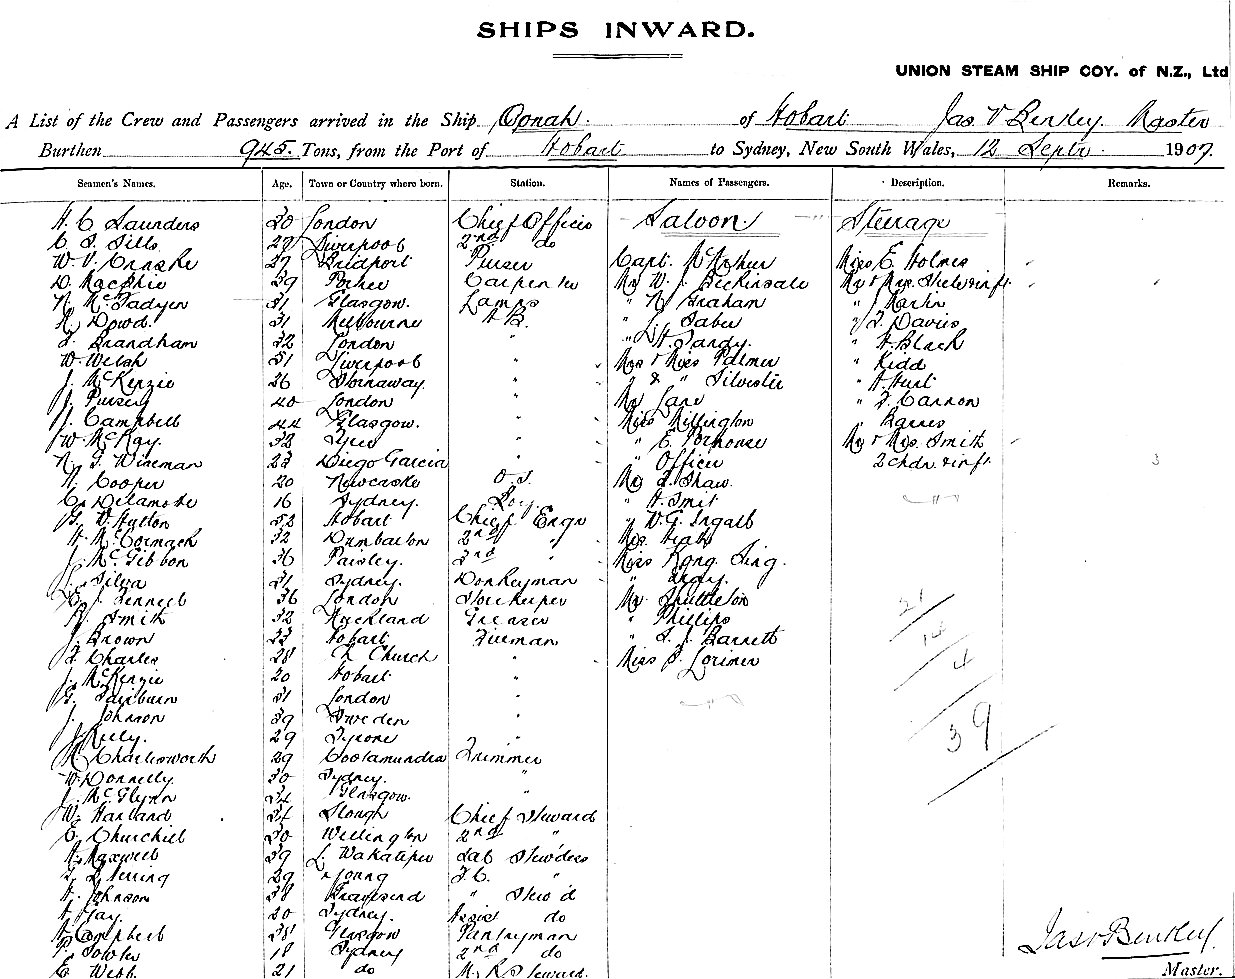 SHIPS INWARD.
UNION STEAM SHIP COY. of N.Z., Ltd
A List of the Crew and Passengers arrived in the Ship Oonah. of Hobart Jas V Bentley Master
Burthen 945. Tons, from the Port of Hobart to Sydney, New South Wales, 12 Septr. 1907.
Seamen's Names. Age. Town or Country where born. Station. Names of Passengers. Description. Remarks.
H. C Saunders 30 London Chief Officer Saloon. Steerage
C. S. Sills Liverpool 2nd do
W. V. 27 Bridport Purser Capt. McArthur Miss E. Holmes
D. MacPhie 39 Carpenter Mr W. J. Bickinsale Mr & Mrs. & inft.
N. McFadyen 31 Glasgow. Lamps " N. Graham " J Martin
Dowd. 31 Melbourne A.B. " Faber " J. Davies
Brandham 32 London " " Pandy. " A. Black
W. Welsh 51 Liverpool " Mrs & Miss Palmer " Kidd
J. McKenzie 26 Stornaway. " " & " Silvester " A. Hurt
J. Pursey 40 London " Mr Lane " J. Cannon
J. Campbell 44 Glasgow. " Miss Millington Barnes
W. McKay. 32 " " E. Porhouse Mr & Mrs. Smith
N. G. Wineman 23 Diego Garcia " " Officer 2 chdn. & inft.
N. Cooper 20 Newcastle O.S. Mr Shaw.
C. Delamothe 16 Sydney. Boy. " A. Smit
G. W. Hylton 52 Hobart Chief Engr " W. G. Ingall
A. McCormack 32 Dumbarton 2nd " Mrs. Heath
J. McGibbon 36 Paisley. 3rd " Miss Kong Sing.
J. Silva 31 Sydney. Donkeyman " Gray.
E. J. Fennell 36 London Storekeeper Mr Shuttleton
R. Smith 32 Auckland Greaser " Phillips 21
J. Brown 33 Hobart. Fireman " S. J. Barrett 14
F. Charles 28 Ch Church " Miss B. Lorimer 4
J. McKenzie 20 Hobart "
G. Fairburn 31 London "
J. Johnson 39 Sweden " 39
J. Kelly. 29 Tyrone "
H. Charlesworth 29 Cootamundra Trimmer
W. Donnelly. 30 Sydney. "
J. McGlynn 34 Glasgow. "
W. Harland 34 Slough Chief Steward
C. Churchill 30 Wellington 2nd "
A. Maxwell 39 L. Wakatipu Sal Stew'dess
Herring 29 Young F.C. "
A. Johnson 38 Gravesend " Stew'd
A Hay. 20 Sydney. Assis do
A Campbell 38 Glasgow Pantryman
P. Fowler 18 Sydney 2nd do
E. Webb. 21 do M. R. Steward.
Jas V Bentley.
Master.